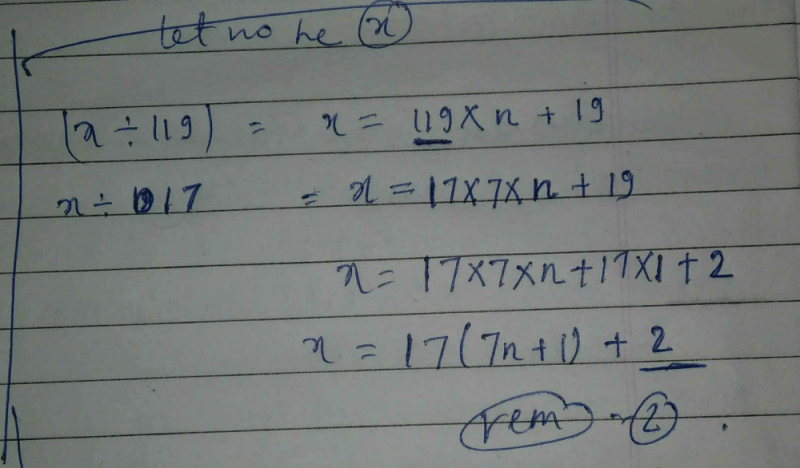 let no be x
(x ÷ 119) = x = 119 × n + 19
x ÷ 17 = x = 17×7×n + 19
x = 17×7×n + 17×1 + 2
x = 17(7n+1) + 2
rem - 2